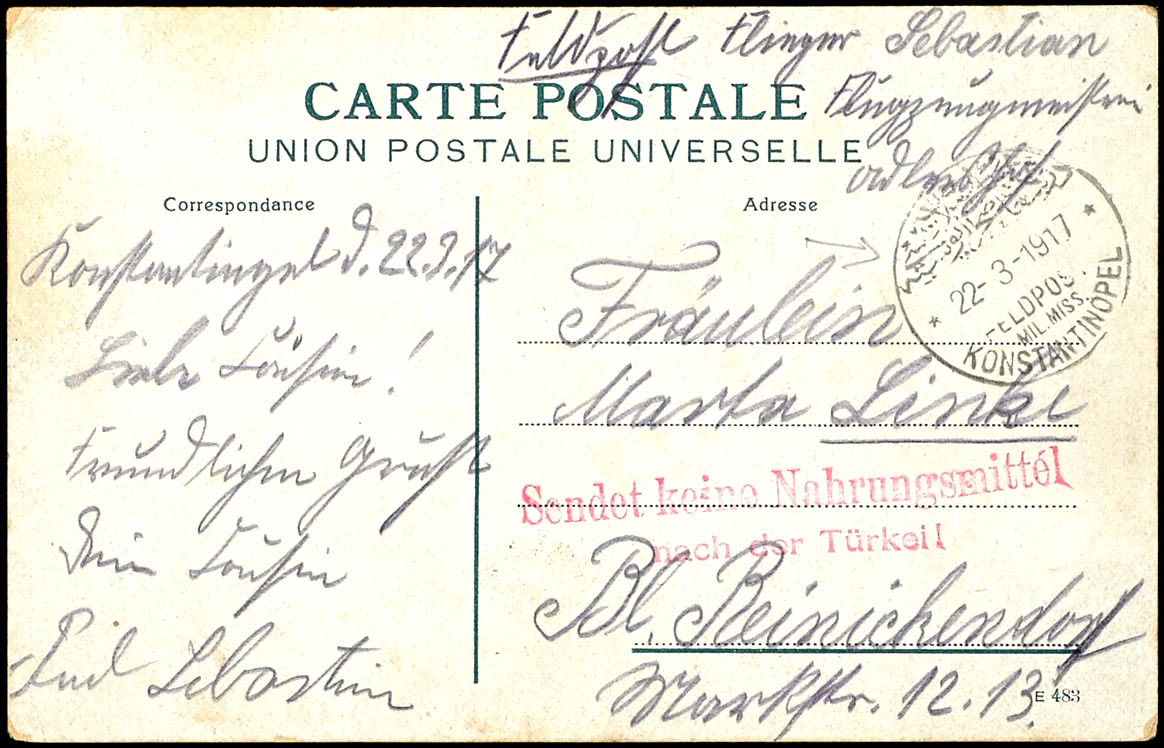 Feldpost Flieger Sebastian
Flugzeugmeisterei
Adlershof
CARTE POSTALE
UNION POSTALE UNIVERSELLE
Correspondance
Konstantinopel d. 22.3.17
Liebe Cousine!
Freundlichen Gruß
Dein Cousin
Sebastian
Adresse
22-3-1917
FELDPOST
MIL.MISS.
KONSTANTINOPEL
Fräulein
Marta Linke
Sendet keine Nahrungsmittel
nach der Türkei!
Bl. Reinickendorf
Markstr. 12.13.
E 483